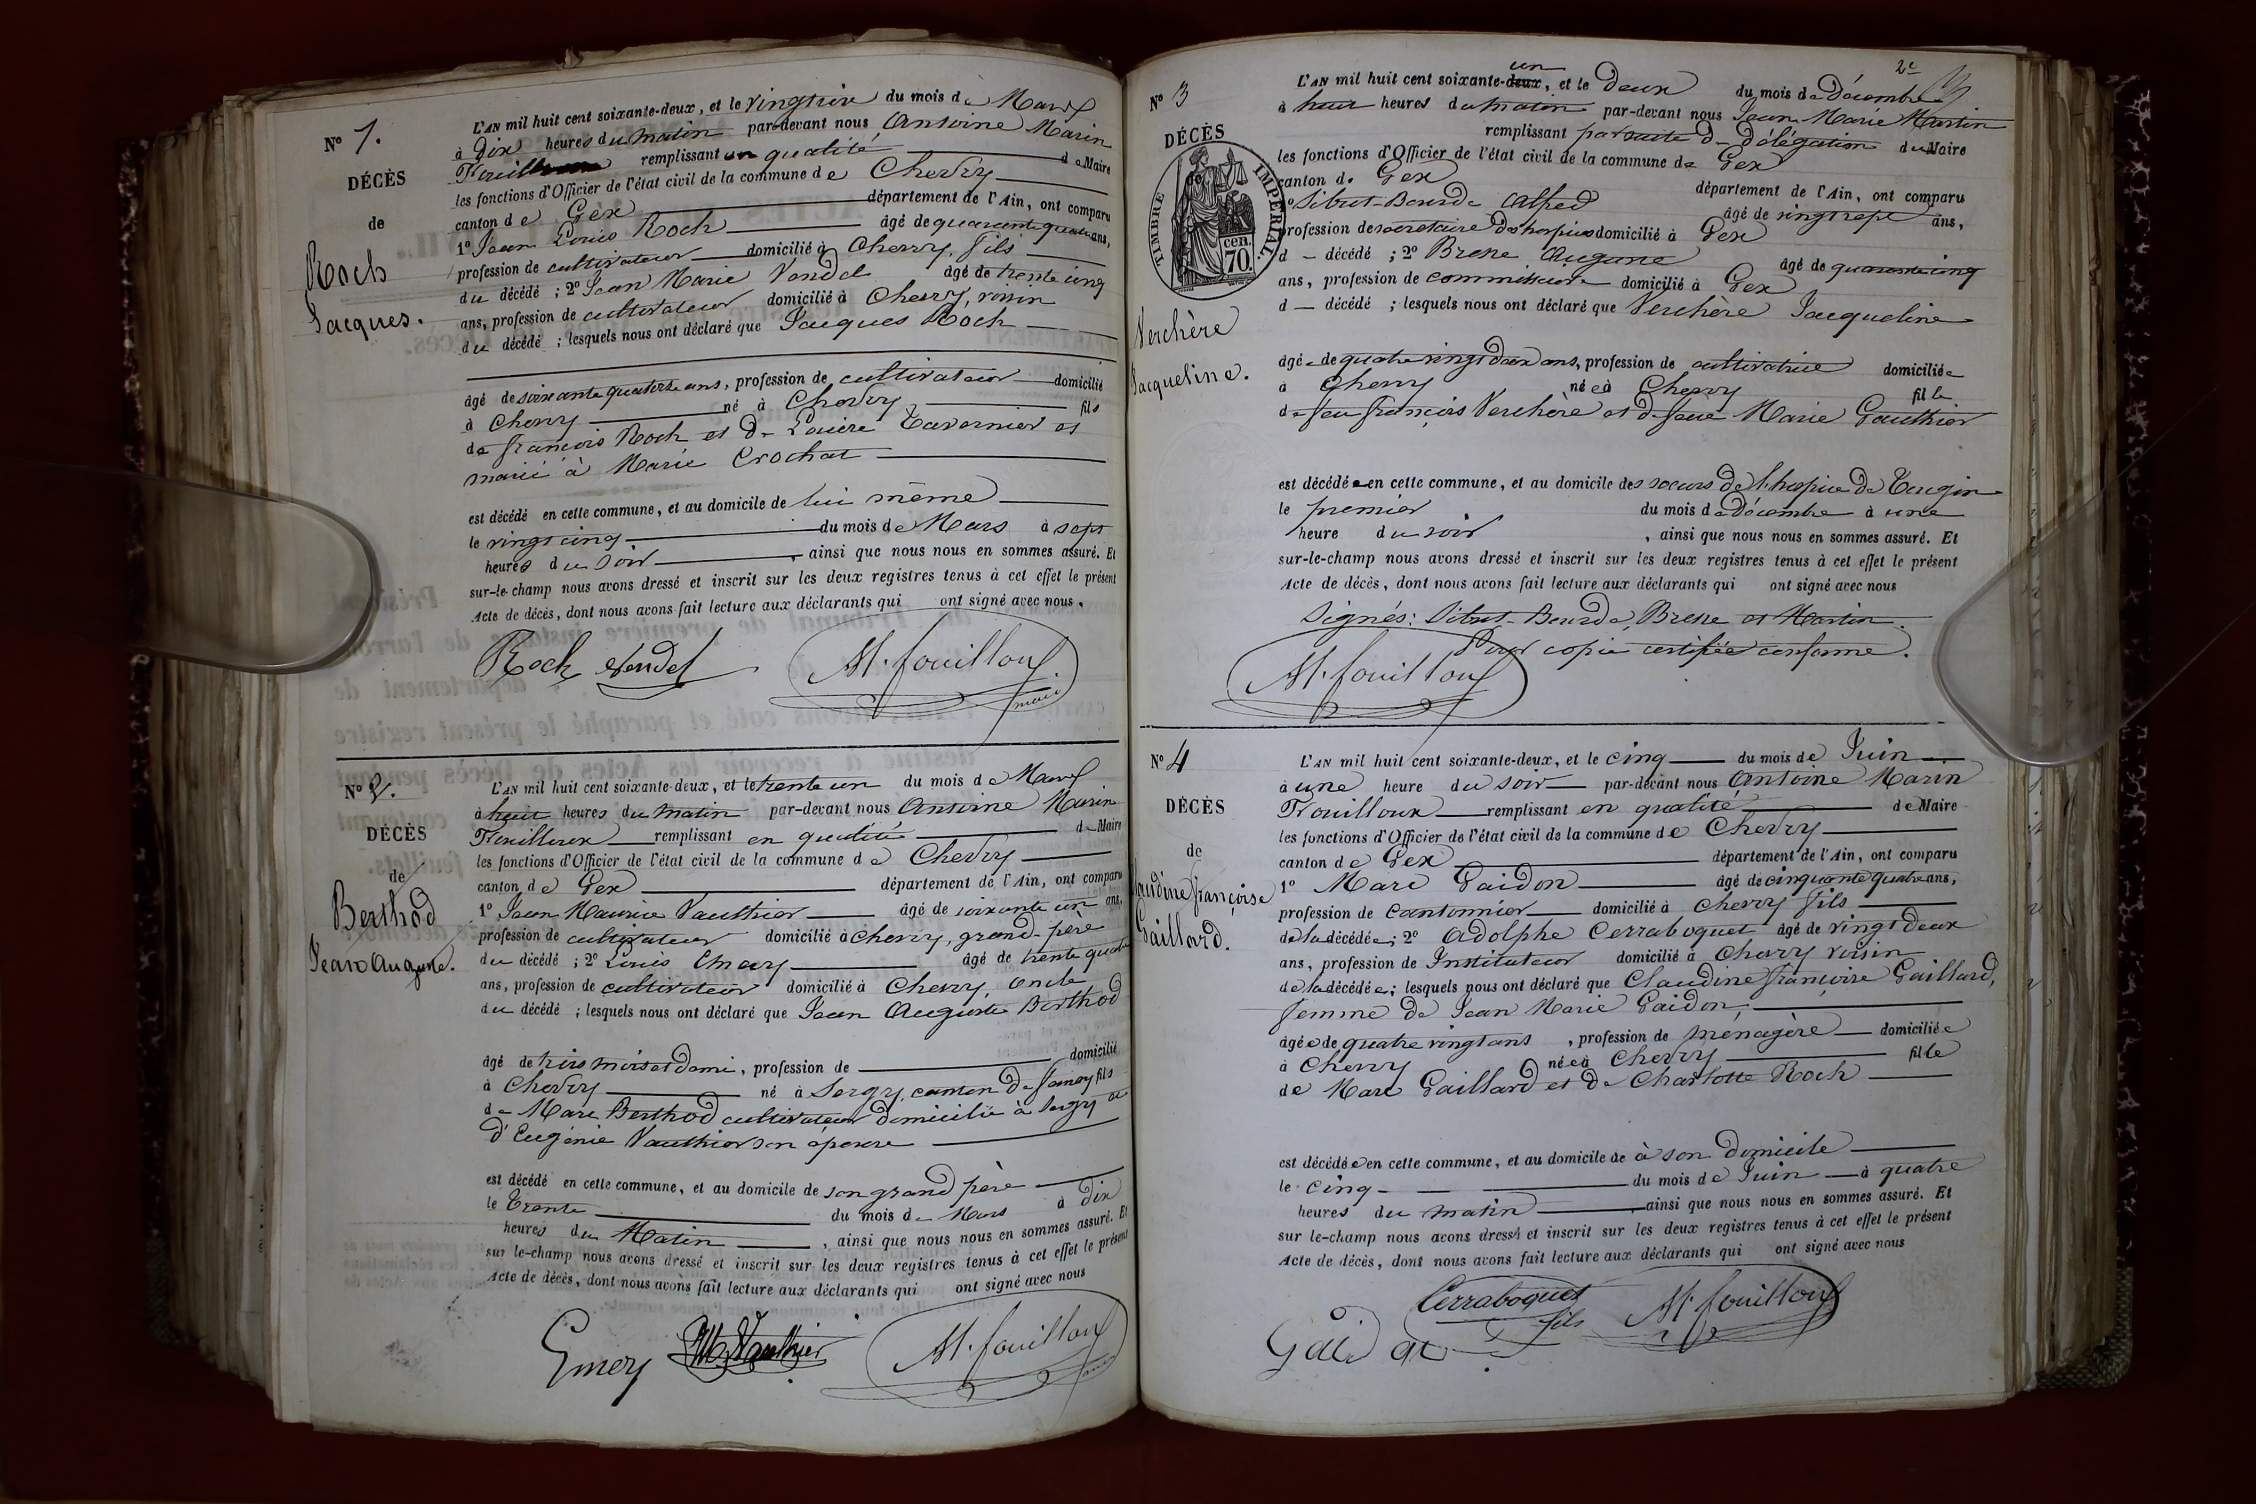 N° 1.
DÉCÈS
de
Roch
Jacques.
L'AN mil huit cent soixante-deux, et le vingt six du mois de Mars
à dix heures du matin par-devant nous Antoine Marin
Fouilloux remplissant en qualité de Maire
les fonctions d'Officier de l'état civil de la commune de Chevry
canton de Gex département de l'Ain, ont comparu
1° Jean Louis Roch âgé de quarante quatre ans,
profession de cultivateur domicilié à Chevry, fils
du décédé ; 2° Jean Marie Vendel âgé de trente cinq
ans, profession de cultivateur domicilié à Chevry, voisin
du décédé ; lesquels nous ont déclaré que Jacques Roch
âgé de soixante quatorze ans, profession de cultivateur domicilié
à Chevry né à Chevry fils
de françois Roch et de Louise Tavernier et
marié à Marie Crochat
est décédé en cette commune, et au domicile de lui même
le vingt cinq du mois de Mars à sept
heures du soir, ainsi que nous nous en sommes assuré. Et
sur-le-champ nous avons dressé et inscrit sur les deux registres tenus à cet effet le présent
Acte de décès, dont nous avons fait lecture aux déclarants qui ont signé avec nous.
Roch Vendel M. fouilloux
maire
N° 2.
DÉCÈS
de
Berthod
Jean Auguste.
L'AN mil huit cent soixante-deux, et le trente un du mois de Mars
à huit heures du matin par-devant nous Antoine Marin
Fouilloux remplissant en qualité de Maire
les fonctions d'Officier de l'état civil de la commune de Chevry
canton de Gex département de l'Ain, ont comparu
1° Jean Maurice Vauthier âgé de soixante un ans,
profession de cultivateur domicilié à Chevry, grand-père
du décédé ; 2° Louis Emery âgé de trente quatre
ans, profession de cultivateur domicilié à Chevry, oncle
du décédé ; lesquels nous ont déclaré que Jean Auguste Berthod
âgé de trois mois et demi, profession de domicilié
à Chevry né à Sergy, canton de ferney fils
de Marc Berthod cultivateur domicilié à Sergy et
d'Eugénie Vauthier son épouse
est décédé en cette commune, et au domicile de son grand père
le Trente du mois de Mars à dix
heures du Matin, ainsi que nous nous en sommes assuré. Et
sur le-champ nous avons dressé et inscrit sur les deux registres tenus à cet effet le présent
Acte de décès, dont nous avons fait lecture aux déclarants qui ont signé avec nous
Emery JM Vauthier M. fouilloux
maire
2e
N° 3
DÉCÈS
de
TIMBRE IMPÉRIAL.
cen.
70.
Verchère
Jacqueline.
un
L'AN mil huit cent soixante-deux, et le deux du mois de Décembre
à huit heures du matin par-devant nous Jean-Marie Martin
remplissant par suite de délégation du Maire
les fonctions d'Officier de l'état civil de la commune de Gex
canton de Gex département de l'Ain, ont comparu
1° Sibut-Bourde Alfred âgé de vingt sept ans,
profession de secrétaire de l'hospice domicilié à Gex
d – décédé ; 2° Eugène âgé de quarante cinq
ans, profession de commissaire domicilié à Gex
d – décédé ; lesquels nous ont déclaré que Verchère Jacqueline
âgée de quatre vingt deux ans, profession de cultivatrice domiciliée
à Chevry née à Chevry fille
de feu françois Verchère et de feue Marie Gauthier
est décédée en cette commune, et au domicile des soeurs de l'hospice de Tougin
le premier du mois de décembre à une
heure du soir, ainsi que nous nous en sommes assuré. Et
sur-le-champ nous avons dressé et inscrit sur les deux registres tenus à cet effet le présent
Acte de décès, dont nous avons fait lecture aux déclarants qui ont signé avec nous
Signés : Sibut-Bourde, et Martin.
Pour copie certifiée conforme.
M. fouilloux
N° 4
DÉCÈS
de
Claudine françoise
Gaillard.
L'AN mil huit cent soixante-deux, et le cinq du mois de Juin
à une heure du soir par-devant nous Antoine Marin
Fouilloux remplissant en qualité de Maire
les fonctions d'Officier de l'état civil de la commune de Chevry
canton de Gex département de l'Ain, ont comparu
1° Marc Gaidon âgé de cinquante quatre ans,
profession de cantonnier domicilié à Chevry fils
de la décédée ; 2° Adolphe Cerraboquet âgé de vingt deux
ans, profession de Instituteur domicilié à Chevry voisin
de la décédée ; lesquels nous ont déclaré que Claudine françoise Gaillard,
femme de Jean Marie Gaidon,
âgée de quatre vingt ans, profession de ménagère domiciliée
à Chevry née à Chevry fille
de Marc Gaillard et de Charlotte Roch
est décédée en cette commune, et au domicile de à son domicile
le cinq du mois de Juin à quatre
heures du matin, ainsi que nous nous en sommes assuré. Et
sur le-champ nous avons dressé et inscrit sur les deux registres tenus à cet effet le présent
Acte de décès, dont nous avons fait lecture aux déclarants qui ont signé avec nous
Cerraboquet fils M. fouilloux